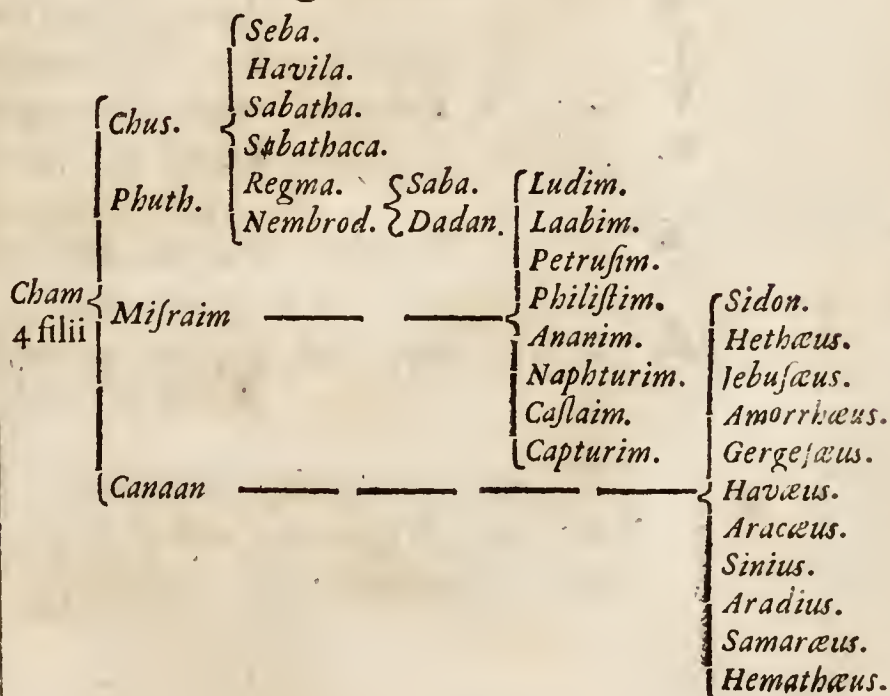 Cham
4 filii
Chus.
Phuth.
Miſraim
Canaan
Seba.
Havila.
Sabatha.
Sabathaca.
Regma.
Nembrod.
Saba.
Dadan.
Ludim.
Laabim.
Petruſim.
Philiſtim.
Ananim.
Naphturim.
Caſlaim.
Capturim.
Sidon.
Hethæus.
Jebuſæus.
Amorrhæus.
Gergeſæus.
Havæus.
Aracæus.
Sinius.
Aradius.
Samaræus.
Hemathæus.